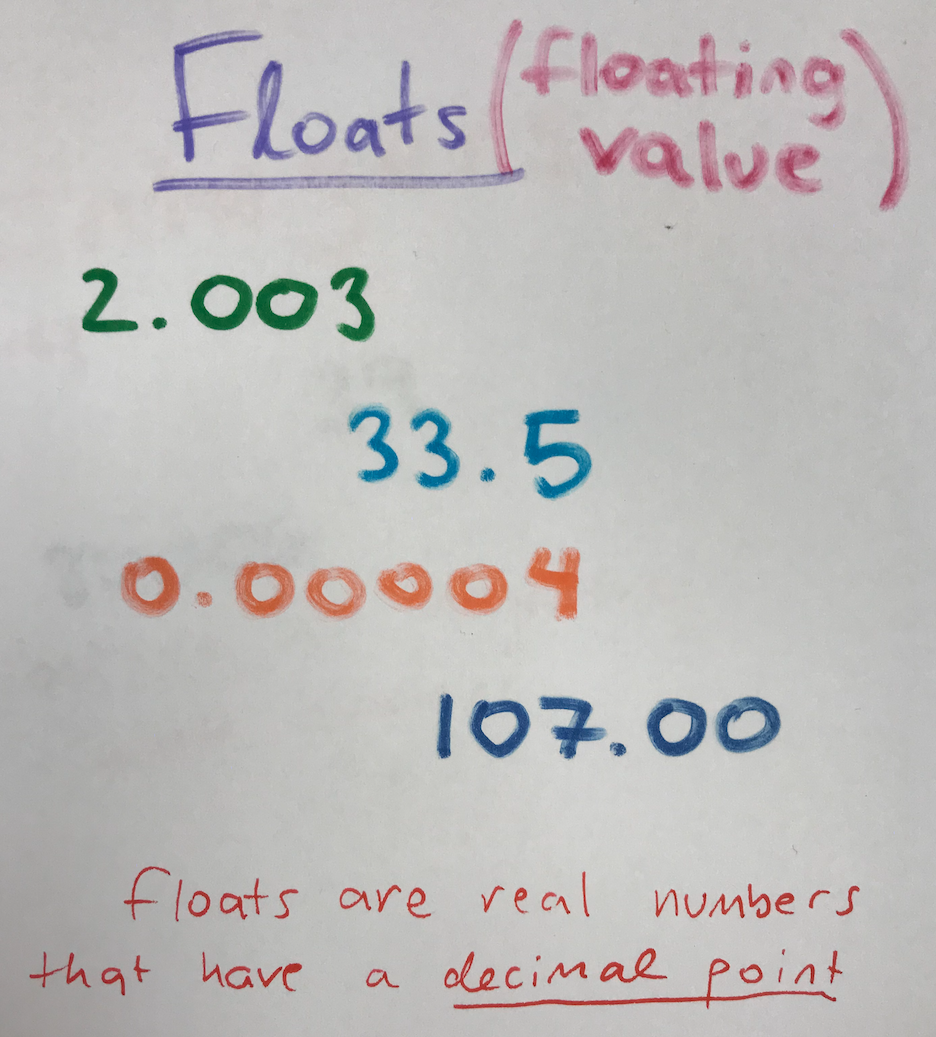 Floats (floating
value)
2.003
33.5
0.00004
107.00
floats are real numbers
that have a decimal point